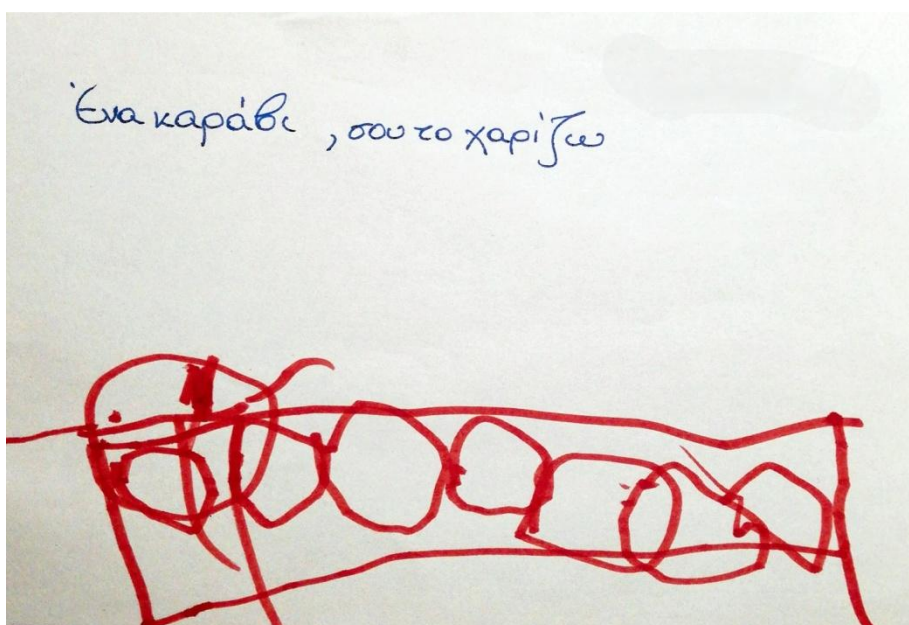 Ένα καράβι , σου το χαρίζω